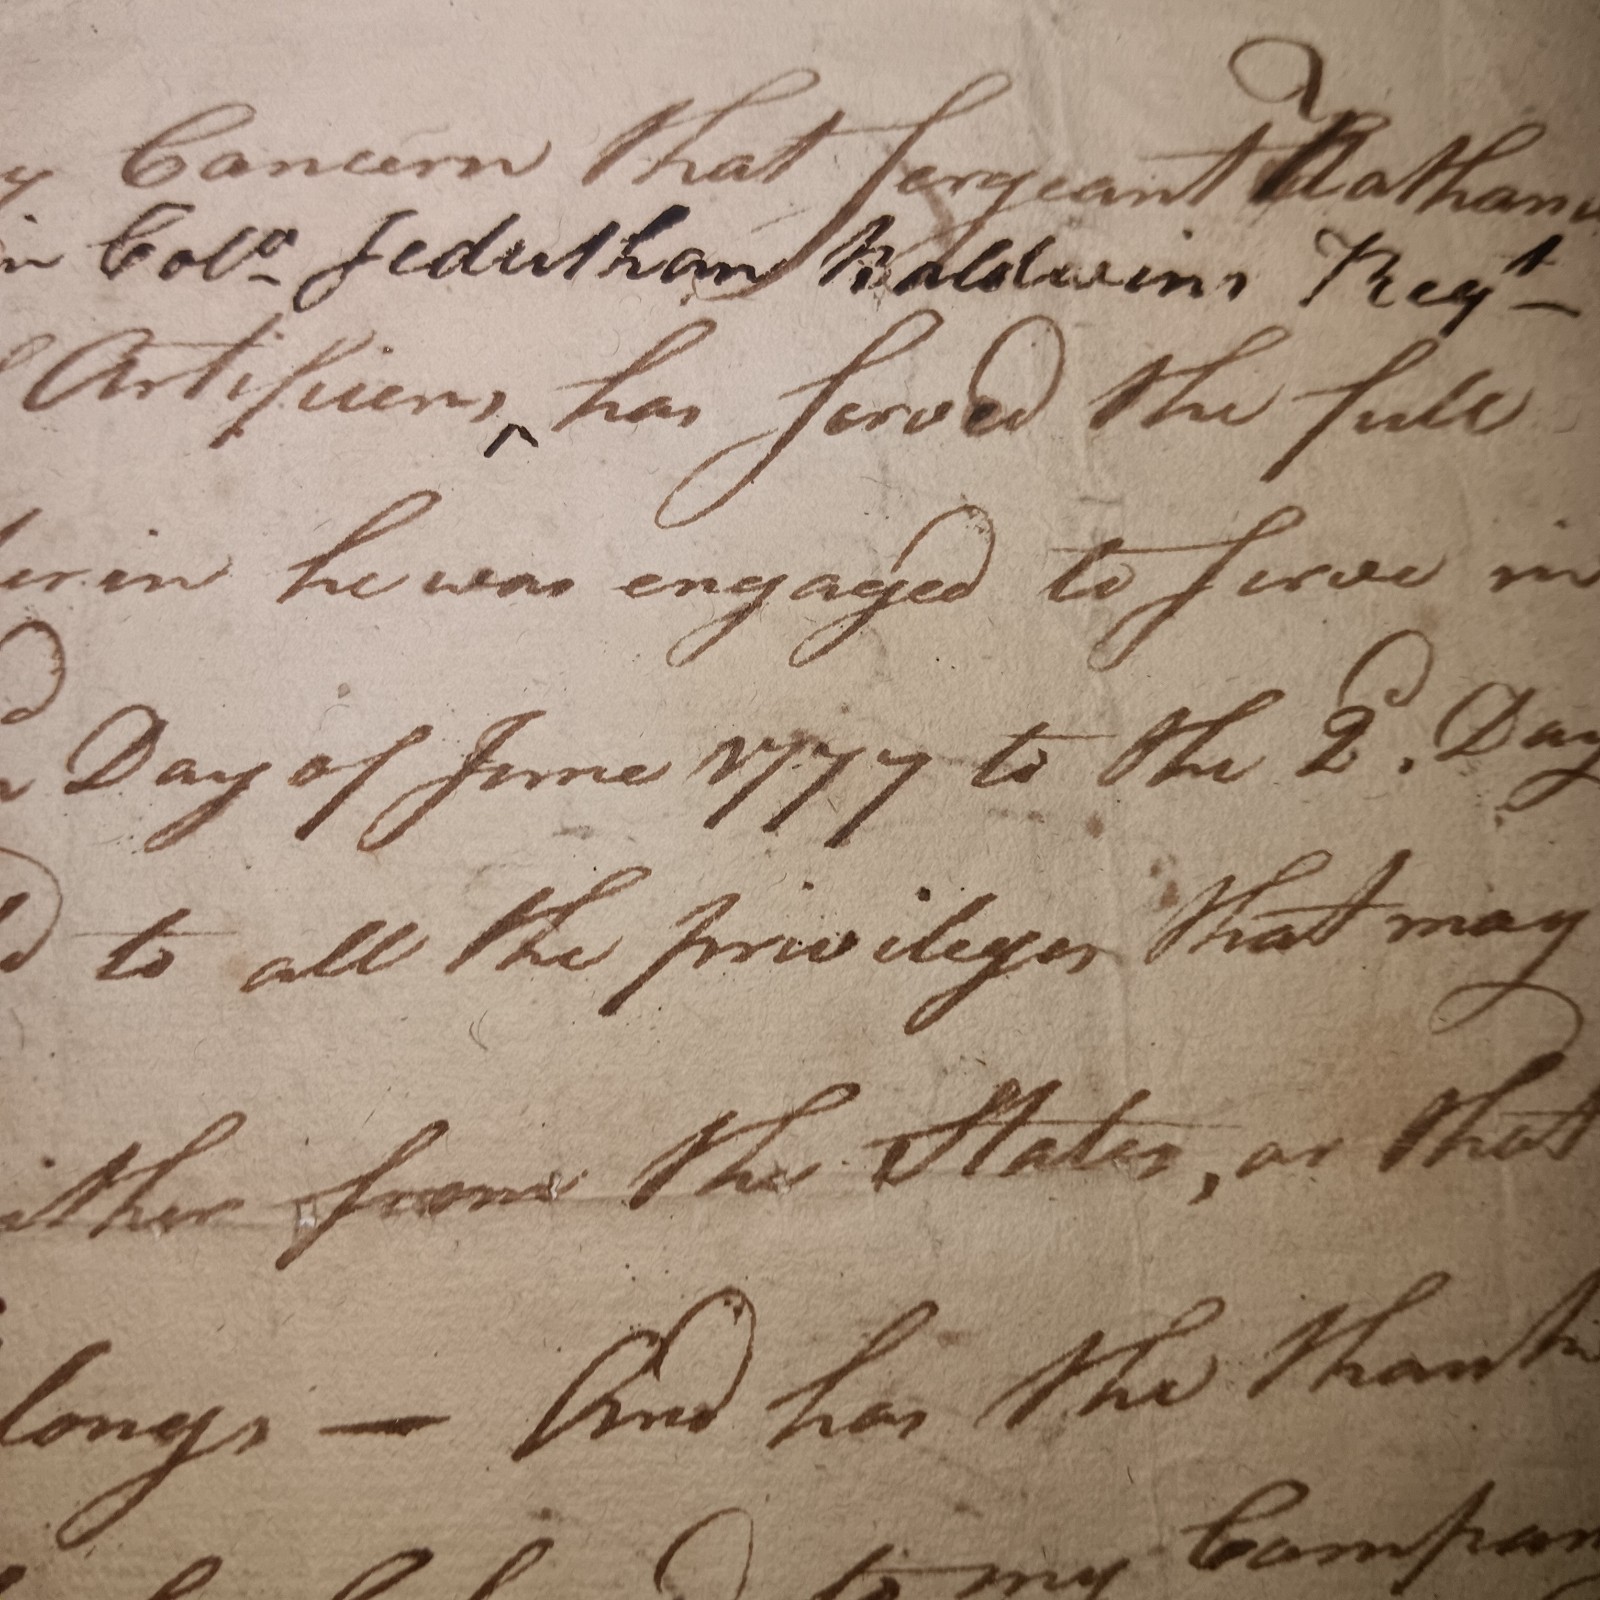 y Concern that Sergeant Nathani
in Colo. Jeduthan Baldwins Regt
Artificers, ^ has served the full
erin he was engaged to serve in
Day of June 1777 to the 2d. Day
d to all the privileges that may
ither from the States, or that
longs — And has the thank
to my Compan